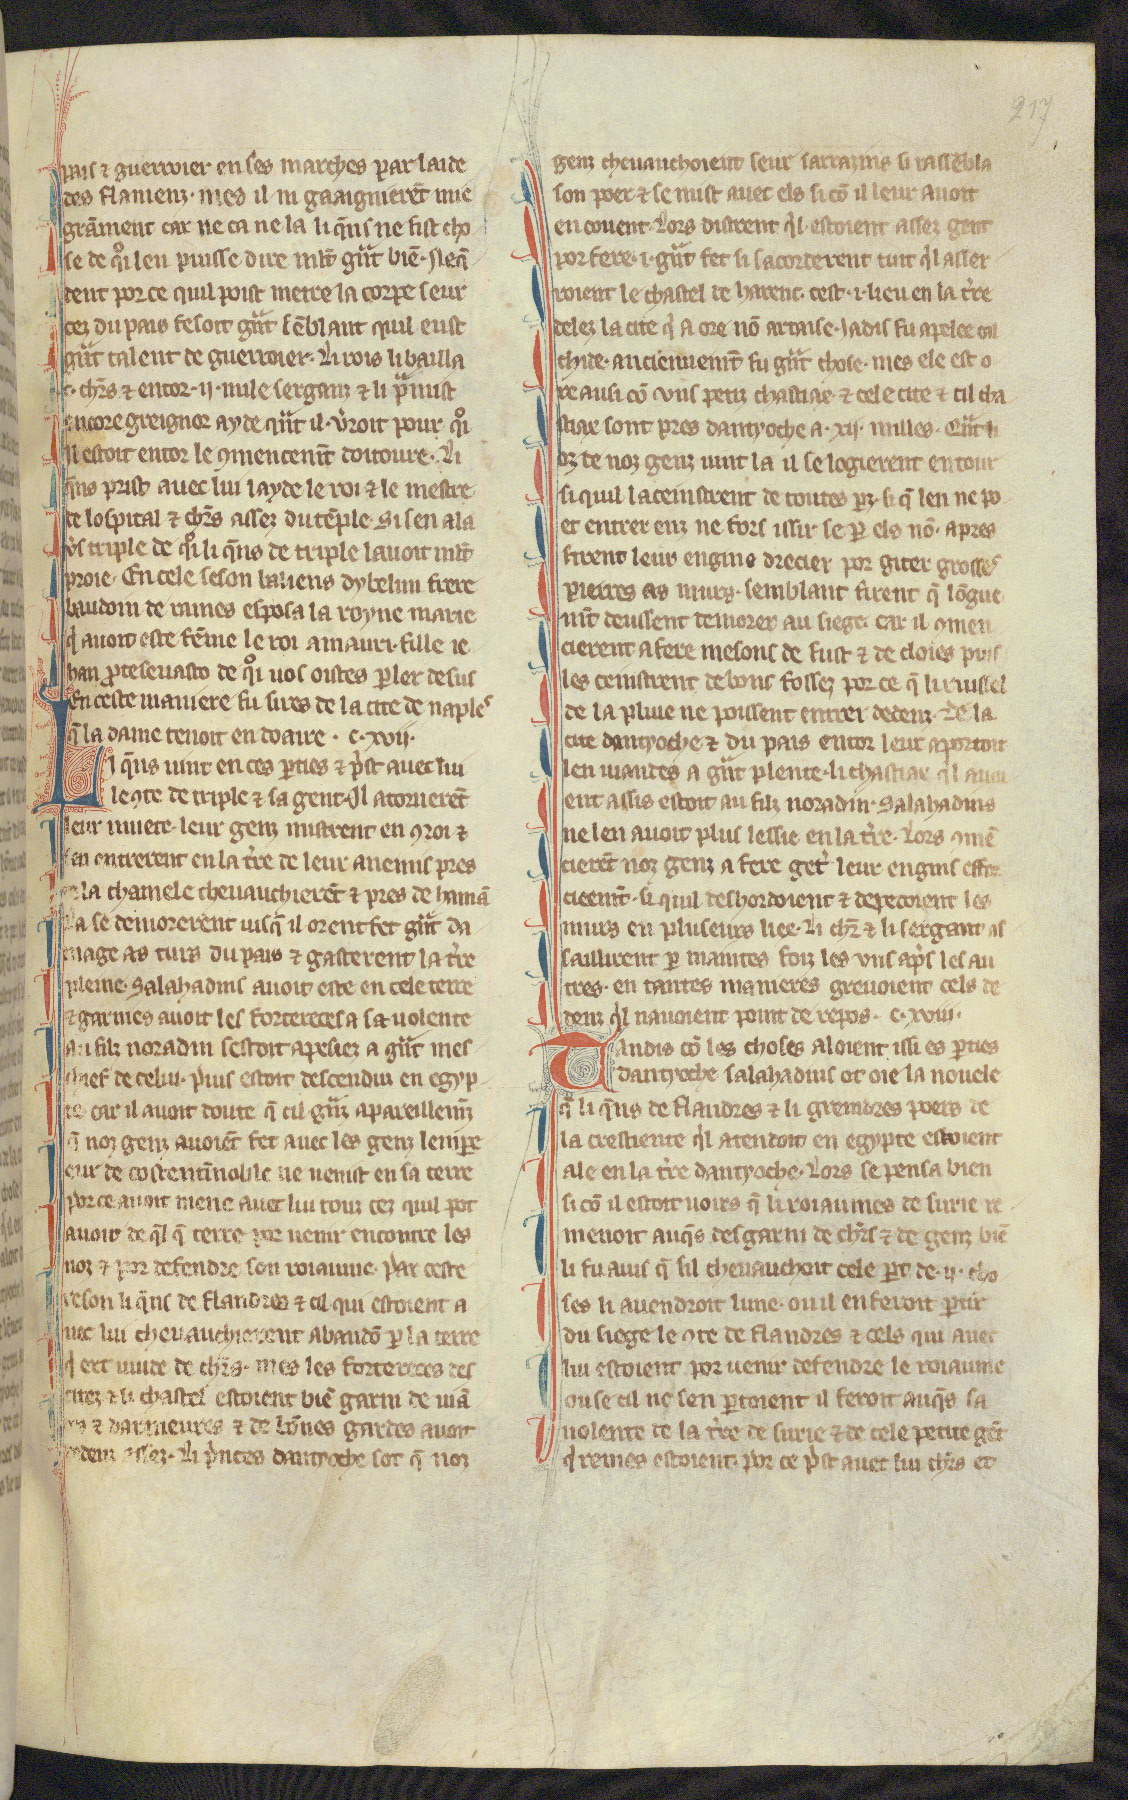 217
pais ⁊ guerroier en ses marches par laide
des flamenz. mes il ni gaaignierēt mie
grāment car ne ca ne la li q̄ns ne fist cho
se de q̊i len puisse dire mlt̄ gūt biē. Neq̄
dent por ce quil poist metre la corpe seur
cez du pais fesoit gūt sēblant quil eust
gūt talent de guerroier. Li rois li bailla
c. chrs̄ ⁊ entor .ij. mile serganz ⁊ li p̄mist
encore greignor ayde qūt il v̄roit pour q̊i
il estoit entor le 9mencemt̄ doitoure. Li
q̄ns prist auec lui layde le roi ⁊ le mestre
de lospital ⁊ chrs̄ assez du tēple. Si sen ala
v̄s triple de q̊i li q̄ns de triple lauoit mlt̄
proie. En cele seson baliens dybelim frere
baudoin de rames esposa la royne marie
q̍ auoit este fēme le roi amauri fille ie
han p̄tesevasto de q̊i uos oistes p̱ler desus
En ceste maniere fu sires de la cite de naples
q̄ la dame tenoit en doaire . c. xvij.
Li q̄ns uint en ces p̱ties ⁊ p̍st auec lui
le 9te de triple ⁊ sa gent. Il atornerēt
leur muete. leur genz mistrent en 9roi ⁊
sen entrerent en la tr̄re de leur anemis pres
de la chamele cheuauchierēt ⁊ pres de hamā
la se demorerent iusq̄ il orent fet gūt da
mage as turs du pais ⁊ gasterent la tr̄re
pleine. Salahadins auoit este en cele terre
⁊ garnies auoit les fortereces a sa uolente
au filz noradin sestoit apesiez a gūt mes
chief de celui. puis estoit descenduz en egyp
te car il auoit doute q̄ cil gūz apareillemz̄
q̄ noz genz auoiēt fet auec les genz lempe
eur de costentinnoble ne uenist en sa terre
por ce auoit mene auec lui touz cez quil pot
auoir de q̄l q̄ terre por uenir encontre les
noz ⁊ por defendre son roiaume. Par ceste
reson li q̄ns de flandres ⁊ cil qui estoient a
uec lui cheuauchierent abandō p̱ la terre
q̍ ert uuide de chrs̄. mes les forterces des
citez ⁊ li chastel estoient biē garni de uiā
des ⁊ darmeures ⁊ de bōnes gardes auoit
dedenz assez. Li p̍nces dantyoche sot q̄ noz
genz cheuauchoient seur sarrazins si rassēbla
son poer ⁊ se mist auec els si cō il leur auoit
en couent. Lors distrent q̍l estoient assez gent
por fere .i. gūt fet si sacorderent tuit q̍l asser
roient le chastel de harenc. cest .i. lieu en la tr̄re
delez la cite q̍ a ore nō artaise. Jadis fu apelee cal
chide. anciennemt̄ fu gūt chose. mes ele est o
re ausi cō uns petiz chastiax ⁊ cele cite ⁊ cil cha
stiax sont pres dantyoche a .xij. milles. Qūt li
oz de noz genz uint la il se logierent entour
si quil la ceinstrent de toutes parz. si q̄ len ne po
et entrer enz ne fors issir se p̱ els nō. apres
firent leur engins drecier por giter grosses
pierres as murs. semblant firent q̄ lōgue
mt̄ deussent demorer au siege. car il 9men
cierent a fere mesons de fust ⁊ de cloies puis
les ceinstrent de bons fossez por ce q̄ li ruissel
de la pluie ne poissent entrer dedenz. De la
cite dantyoche ⁊ du pais entor leur aportoit
len uiandes a gūt plente. li chastiax q̍l auoi
ent assis estoit au filz noradin. Salahadins
ne len auoit plus lessie en la tr̄re. Lors 9mē
cierēt noz genz a fere get̍ leur engins effor
cieemt̄. si quil deshordoient ⁊ depecoient les
murs en pluseurs liex. Li chr̄ ⁊ li sergant as
saillirent p̱ maintes foiz les uns ap̍s les au
tres. en tantes manieres greuoient cels de
denz q̍l nauoient point de repos. c. xviii.
Tandis cō les choses aloient issi es p̱ties
dantyoche salahadins ot oie la nouele
q̄ li q̄ns de flandres ⁊ li greindres poers de
la crestiente q̍l atendoit en egypte estoient
ale en la tr̄re dantyoche. Lors se pensa bien
si cō il estoit uoirs q̄ li roiaumes de surie re
menoit auq̄s desgarni de chrs̄ ⁊ de genz biē
li fu auis q̄ sil cheuauchoit cele p̱t de .ij. cho
ses li auendroit lune. ou il en feroit p̱tir
du siege le 9te de flandres ⁊ cels qui auec
lui estoient por uenir defendre le roiaume
ou se cil ne sen p̱toient il feroit auq̄s sa
uolente de la tr̄re de surie ⁊ de cele petite gēt
q̍ remes estoient. por ce p̍st auec lui chrs̄ et